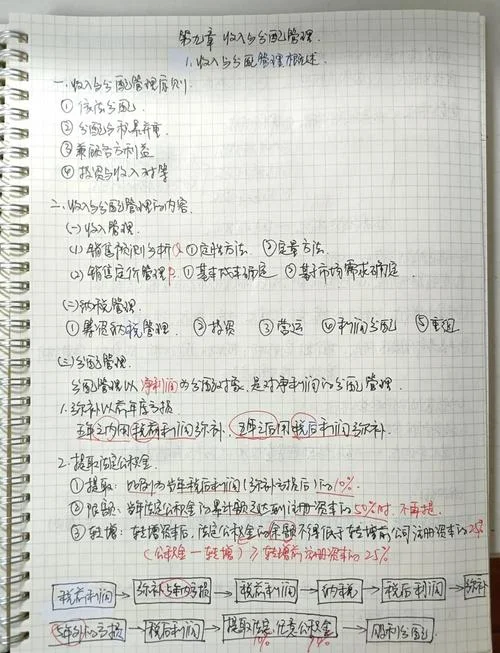 第九章 收入与分配管理.
1.收入与分配管理概述.
一.收入与分配管理原则.
① 依法分配.
② 分配与积累并重.
③ 兼顾各方利益
④ 投资与收入对等
二.收入与分配管理的内容.
(一)收入管理.
(1) 销售预测分析Q ①定性方法. ②定量方法.
(2) 销售定价管理P. ①基本成本确定 ②基于市场需求确定.
(二)纳税管理.
① 筹资纳税管理. ②投资 ③营运 ④利润分配 ⑤重组
(三)分配管理.
分配管理以净利润为分配对象,是对净利润的分配管理.
1.弥补以前年度亏损
五年之内用税前利润弥补.五年之后用税后利润弥补.
2.提取法定公积金.
① 提取:比例为当年税后利润(弥补亏损后)的10%.
② 限额:当年法定公积金的累计额已达到注册资本的50%时.不再提.
③ 转增:转增资本后,法定公积金的余额不得低于转增前公司注册资本的25%
(公积金-转增)≥转增前注册资本的25%
税前利润→弥补5年内亏损→税前利润→纳税→税后利润→弥补
5年外的亏损→税后利润→提取法定.任意公积金→股利分配.
10%